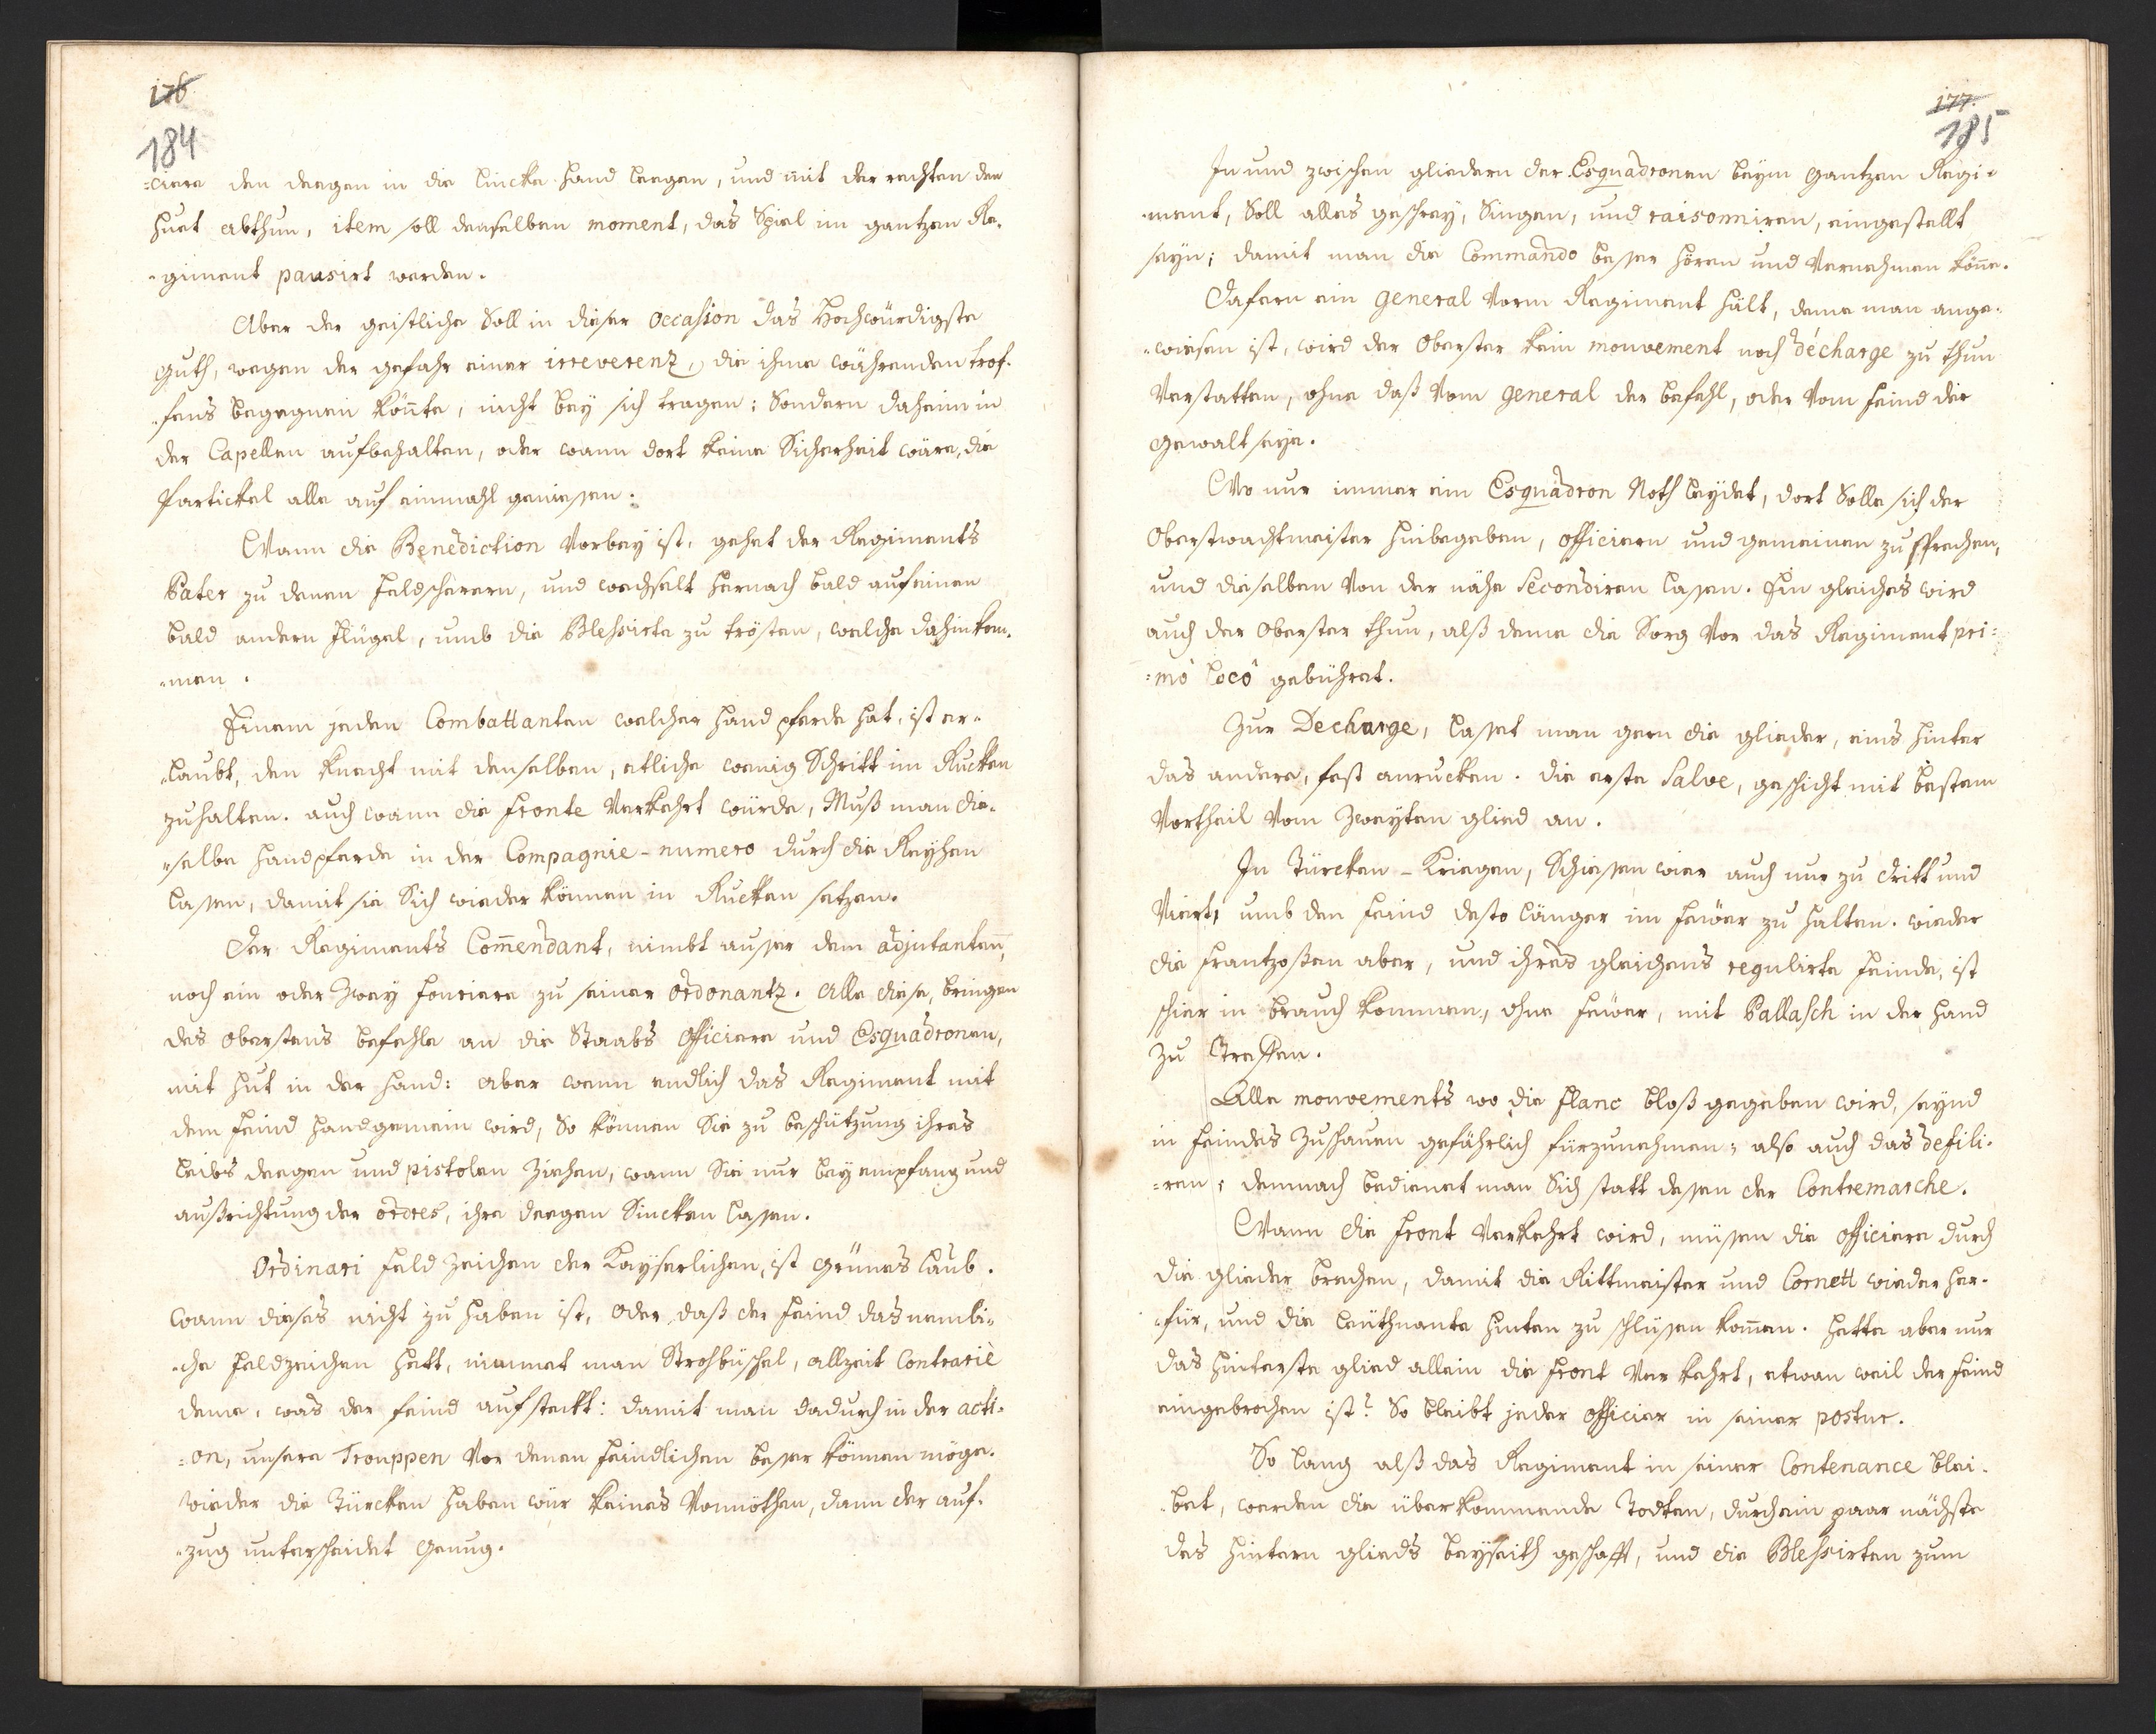 176
184
=ciere den deegen in die lincke hand leegen, und mit der rechten den
huet abthun, item soll denselben moment, das Spiel im gantzen Re¬
=giment pausirt werden.
Aber der geistliche Soll in dieser occasion das Hochwürdigste
guth, wegen der gefahr einer irreverenz, die ihme währenden tref¬
=fens begegnen könte, nicht bey sich tragen; Sondern daheim in
der Capellen aufbehalten, oder wann dort keine Sicherheit wäre, die
Partickel alle auf einmahl geniessen.
Wann die Benediction Vorbey ist, gehet der Regiments
Pater zu denen feldscherern, und wechselt hernach bald auf einen
bald andern flügel, umb die Blessirte zu trösten, welche dahin kom¬
=men.
Einem jeden Combattanten welcher handpferde hat, ist er¬
=laubt, den knecht mit denselben, etliche wenig Schritt im Rucken
zuhalten. auch wann die fronte Verkehrt würde, Muß man die¬
=selbe handpferde in der Compagnie-numero durch die Reyhen
lassen, damit sie Sich wieder können in Rucken setzen.
Der Regiments Com̄endant, nimbt ausser dem adjutanten,
noch ein oder zwey fouriere zu seiner ordonantz. Alle diese, bringen
des obersten's befehle an die Staabs officiere und Esquadronen,
mit hut in der hand: aber wenn endlich das Regiment mit
dem feind handgemein wird, So können Sie zu beschützung ihres
leibs deegen und pistolen ziehen, wann Sie nur bey empfang und
außrichtung der ordres, ihre deegen Sincken lassen.
Ordinari feld zeichen der Kayserlichen, ist grünes laub.
wann dieses nicht zu haben ist, oder daß der feind das nemli¬
=che feldzeichen hett, nimmet man Strohbüschel, allzeit Contrariè
deme, was der feind aufsteckt: damit man dadurch in der acti¬
=on, unsere Trouppen Vor denen feindlichen besser können möge.
wieder die Türcken haben wür keines Vonnöthen, dann der auf¬
=zug unterscheidet genug.
177.
185
In und zwischen gliedern der Esquadronen beym gantzen Regi¬
=ment, Soll alles geschrey, Singen, und raisonniren, eingestellt
seyn; damit man die Commando besser hören und Vernehmen köñe.
Dafern ein general Vorm Regiment hält, deme man ange¬
=wiesen ist, wird der Oberster kein mouvement noch décharge zu thun
Verstatten, ohne daß Vom general der befehl, oder Vom feind der
gewalt seye.
Wo nur immer ein Esquadron Noth leydet, dort Solle sich der
Oberstwachtmeister hinbegeben, officiern und gemeinen zusprechen,
und dieselben Von der nähe Secondiren lassen. Ein gleiches wird
auch der Oberster thun, alß deme die Sorg Vor das Regiment pri¬
=mò locô gebühret.
Zur Decharge, lasset man gern die glieder, eins hinter
das andere, fest anrucken. die erste Salve, geschicht mit bestem
Vortheil Vom zweyten glied an.
In Türcken-Kriegen, Schiessen wier auch nur zu dritt und
Viert, umb den feind desto länger im feüer zu halten. wieder
die frantzoßen aber, und ihres gleichens regulirte feinde, ist
schier in brauch kommen, ohne feüer, mit Pallasch in der hand
zu Treffen.
Alle mouvements wo die flanc bloß gegeben wird, seynd
in feindes zuschauen gefährlich fürzunehmen; also auch das defili¬
=ren; demnach bedienet man Sich statt dessen der Contremarche.
Wann die front Verkehrt wird, müssen die officiere durch
die glieder brechen, damit die Rittmeister und Cornett wieder her¬
=für, und die leüthnante hinten zu schlüssen kom̄en. hette aber nur
das hinterste glied allein die front Verkehrt, etwan weil der feind
eingebrochen ist? So bleibt jeder officier in seiner postur.
So lang alß das Regiment in seiner Contenance blei¬
=bet, werden die überkommende Todten, durch ein paar nächste
des hintern glieds beyseith geschafft, und die Blessirten zum